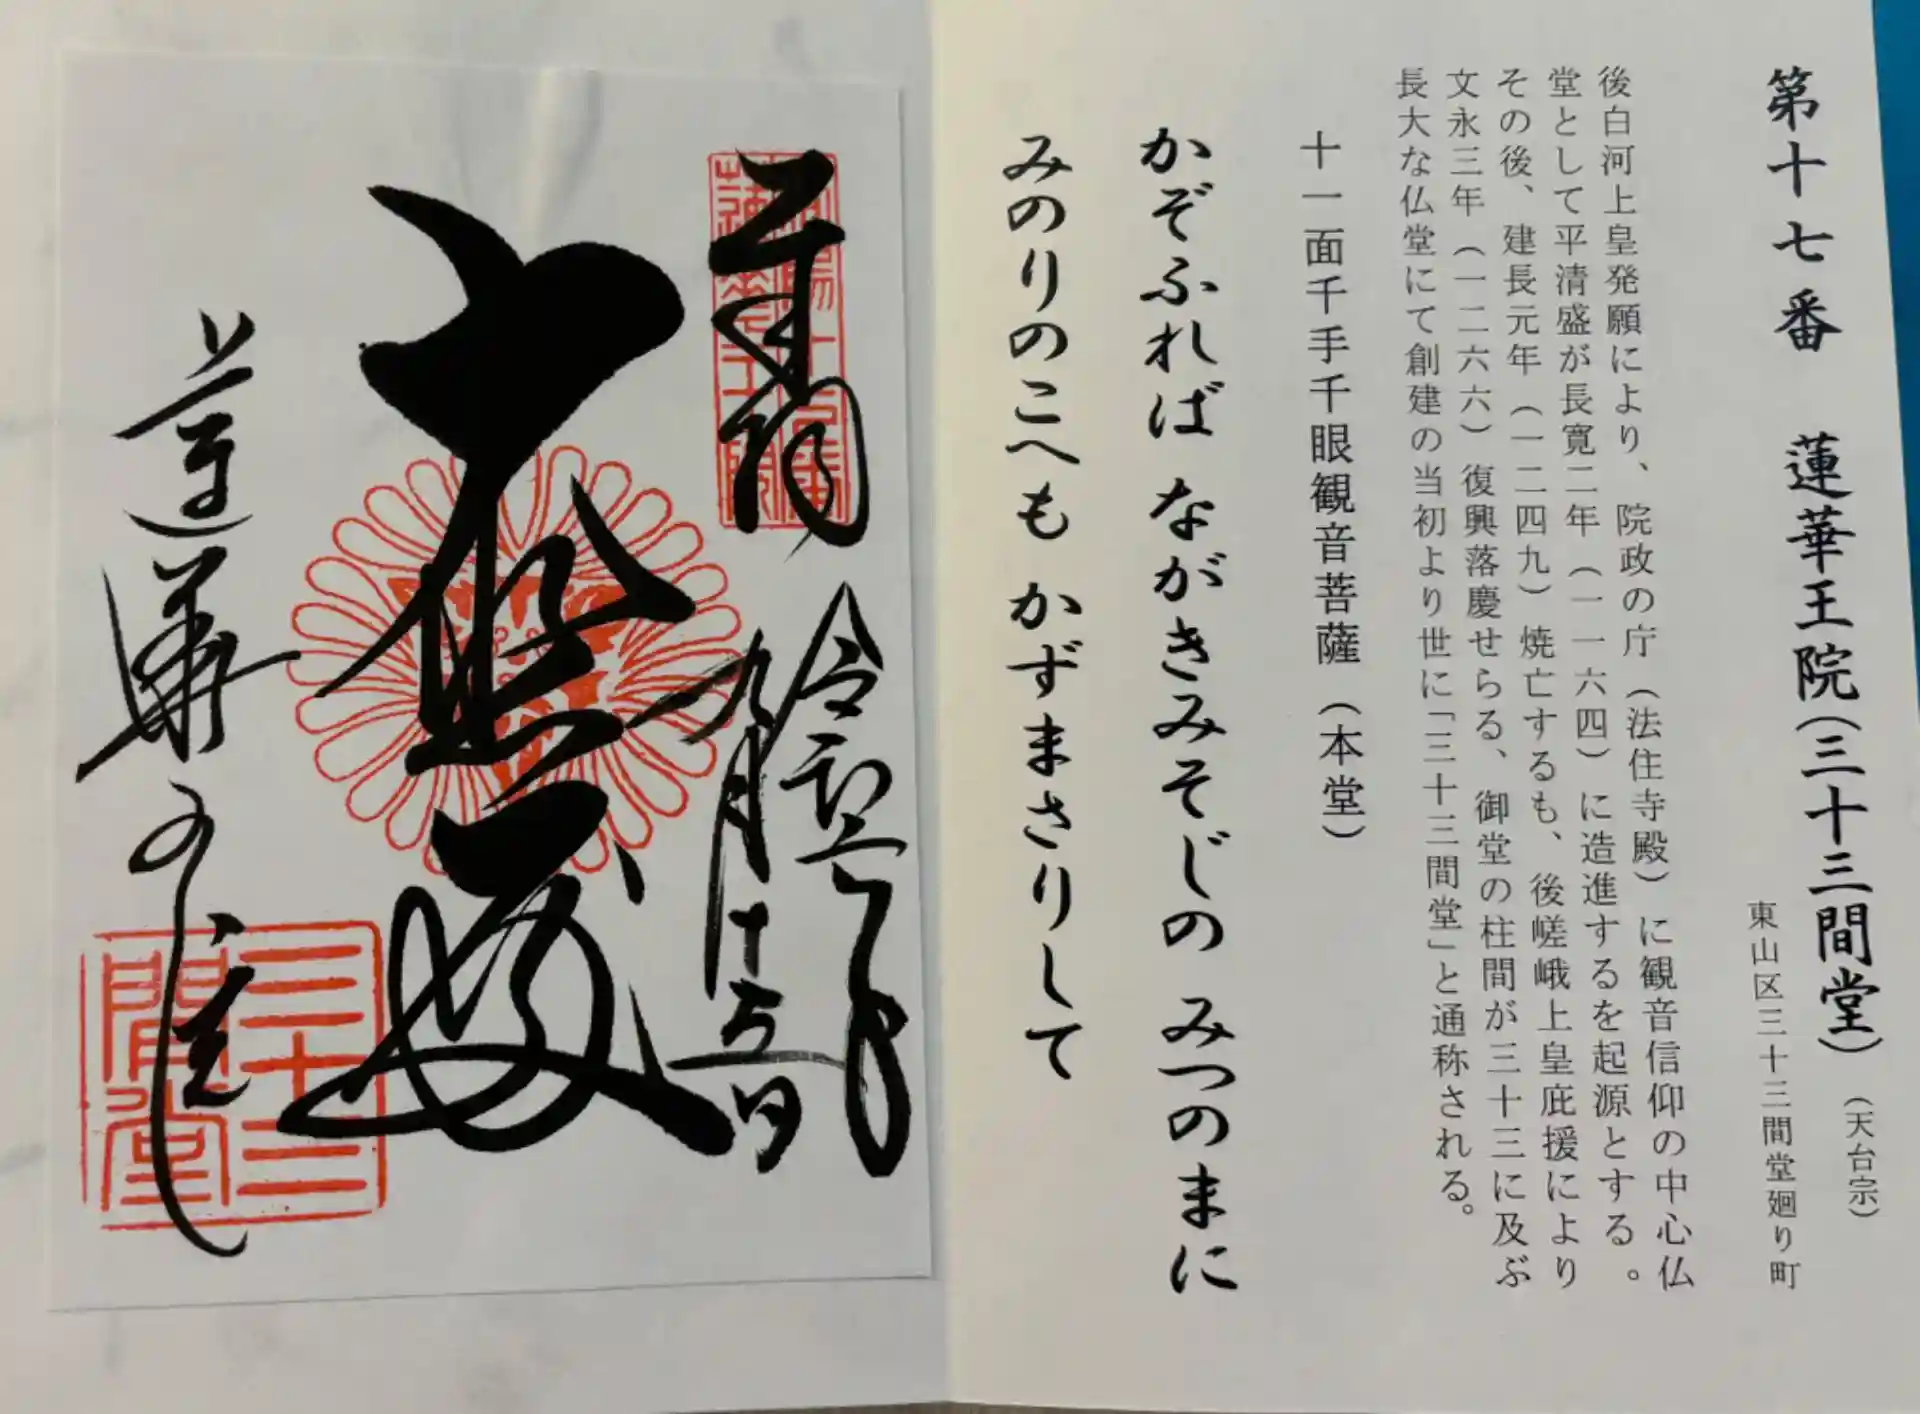 第十七番 蓮華王院(三十三間堂)(天台宗)
東山区三十三間堂廻り町
後白河上皇発願により、院政の庁(法住寺殿)に観音信仰の中心仏
堂として平清盛が長寛二年(一一六四)に造進するを起源とする。
その後、建長元年(一二四九)焼亡するも、後嵯峨上皇庇援により
文永三年(一二六六)復興落慶せらる、御堂の柱間が三十三に及ぶ
長大な仏堂にて創建の当初より世に「三十三間堂」と通称される。
十一面千手千眼観音菩薩(本堂)
かぞふれば ながきみそじの みつのまに
みのりのこへも かずまさりして
奉拝
九月十六日
大悲殿
蓮華王院
三十三
間堂